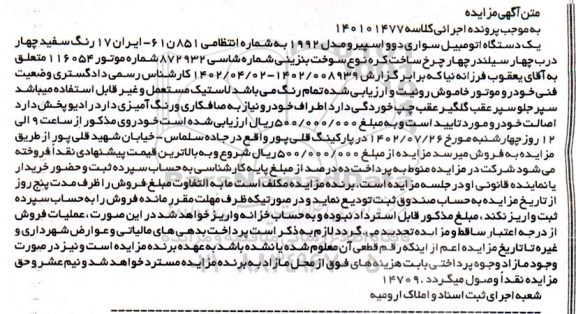 متن آگهی مزایده
به موجب پرونده اجرائی کلاسه ۱۴۰۱۰۱۴۷۷
یک دستگاه اتومبیل سواری دوو اسپیرو مدل ۱۹۹۲ به شماره انتظامی ۸۵۱ن۶۱- ایران ۱۷ رنگ سفید چهار
درب چهار سیلندر چهار چرخ ساخت کره نوع سوخت بنزینی شماره شاسی ۸۷۲۹۳۲ شماره موتور ۱۱۶۰۵۴ متعلق
به آقای یعقوب فرزانه نیا که برابر گزارش ۱۴۰۲/۰۰۸۹۳۹-۱۴۰۲/۰۴/۰۲ کارشناس رسمی دادگستری وضعیت
فنی خودرو موتور خاموش رونیت و ارزیابی شده تمام رنگ می باشد لاستیک مستعمل و غیر قابل استفاده میباشد
سپر جلو سپر عقب گلگیر عقب چپ خوردگی دارد اطراف خودرو نیاز به صافکاری و رنگ آمیزی دارد رادیو پخش دارد
اصالت خودرو مورد تایید است و به مبلغ ۵۰۰/۰۰۰/۰۰۰ ریال ارزیابی شده است خودروی مذکور از ساعت ۹ الی
۱۲ روز چهارشنبه مورخ ۱۴۰۲/۰۷/۲۶ در پارکینگ قلی پور واقع در جاده سلماس - خیابان شهید قلی پور از طریق
مزایده به فروش میرسد مزایده از مبلغ ۵۰۰/۰۰۰/۰۰۰ ریال شروع و به بالاترین قیمت پیشنهادی نقداً فروخته
می شود شرکت در مزایده منوط به پرداخت ده درصد از مبلغ پایه کارشناسی به حساب سپرده ثبت و حضور خریدار
یا نماینده قانونی او در جلسه مزایده است. برنده مزایده مکلف است ما به التفاوت مبلغ فروش را ظرف مدت پنج روز
از تاریخ مزایده به حساب صندوق ثبت تودیع نماید و در صورتیکه ظرف مهلت مقرر مانده فروش را به حساب سپرده
ثبت واریز نکند، مبلغ مذکور قابل استرداد نبوده و به حساب خزانه واریز خواهد شد در این صورت، عملیات فروش
از درجه اعتبار ساقط و مزایده تجدید می گردد لازم به ذکر است پرداخت بدهی های مالیاتی و عوارض شهرداری و
غیره تا تاریخ مزایده اعم از اینکه رقم قطعی آن معلوم شده یا نشده باشد به عهده برنده مزایده است و نیز در صورت
وجود مازاد وجوه پرداختی بابت هزینه های فوق از محل مازاد به برنده مزایده مسترد خواهد شد و نیم عشر و حق
مزایده نقداً وصول میگردد. ۱۴۷۰۹
شعبه اجرای ثبت اسناد و املاک ارومیه